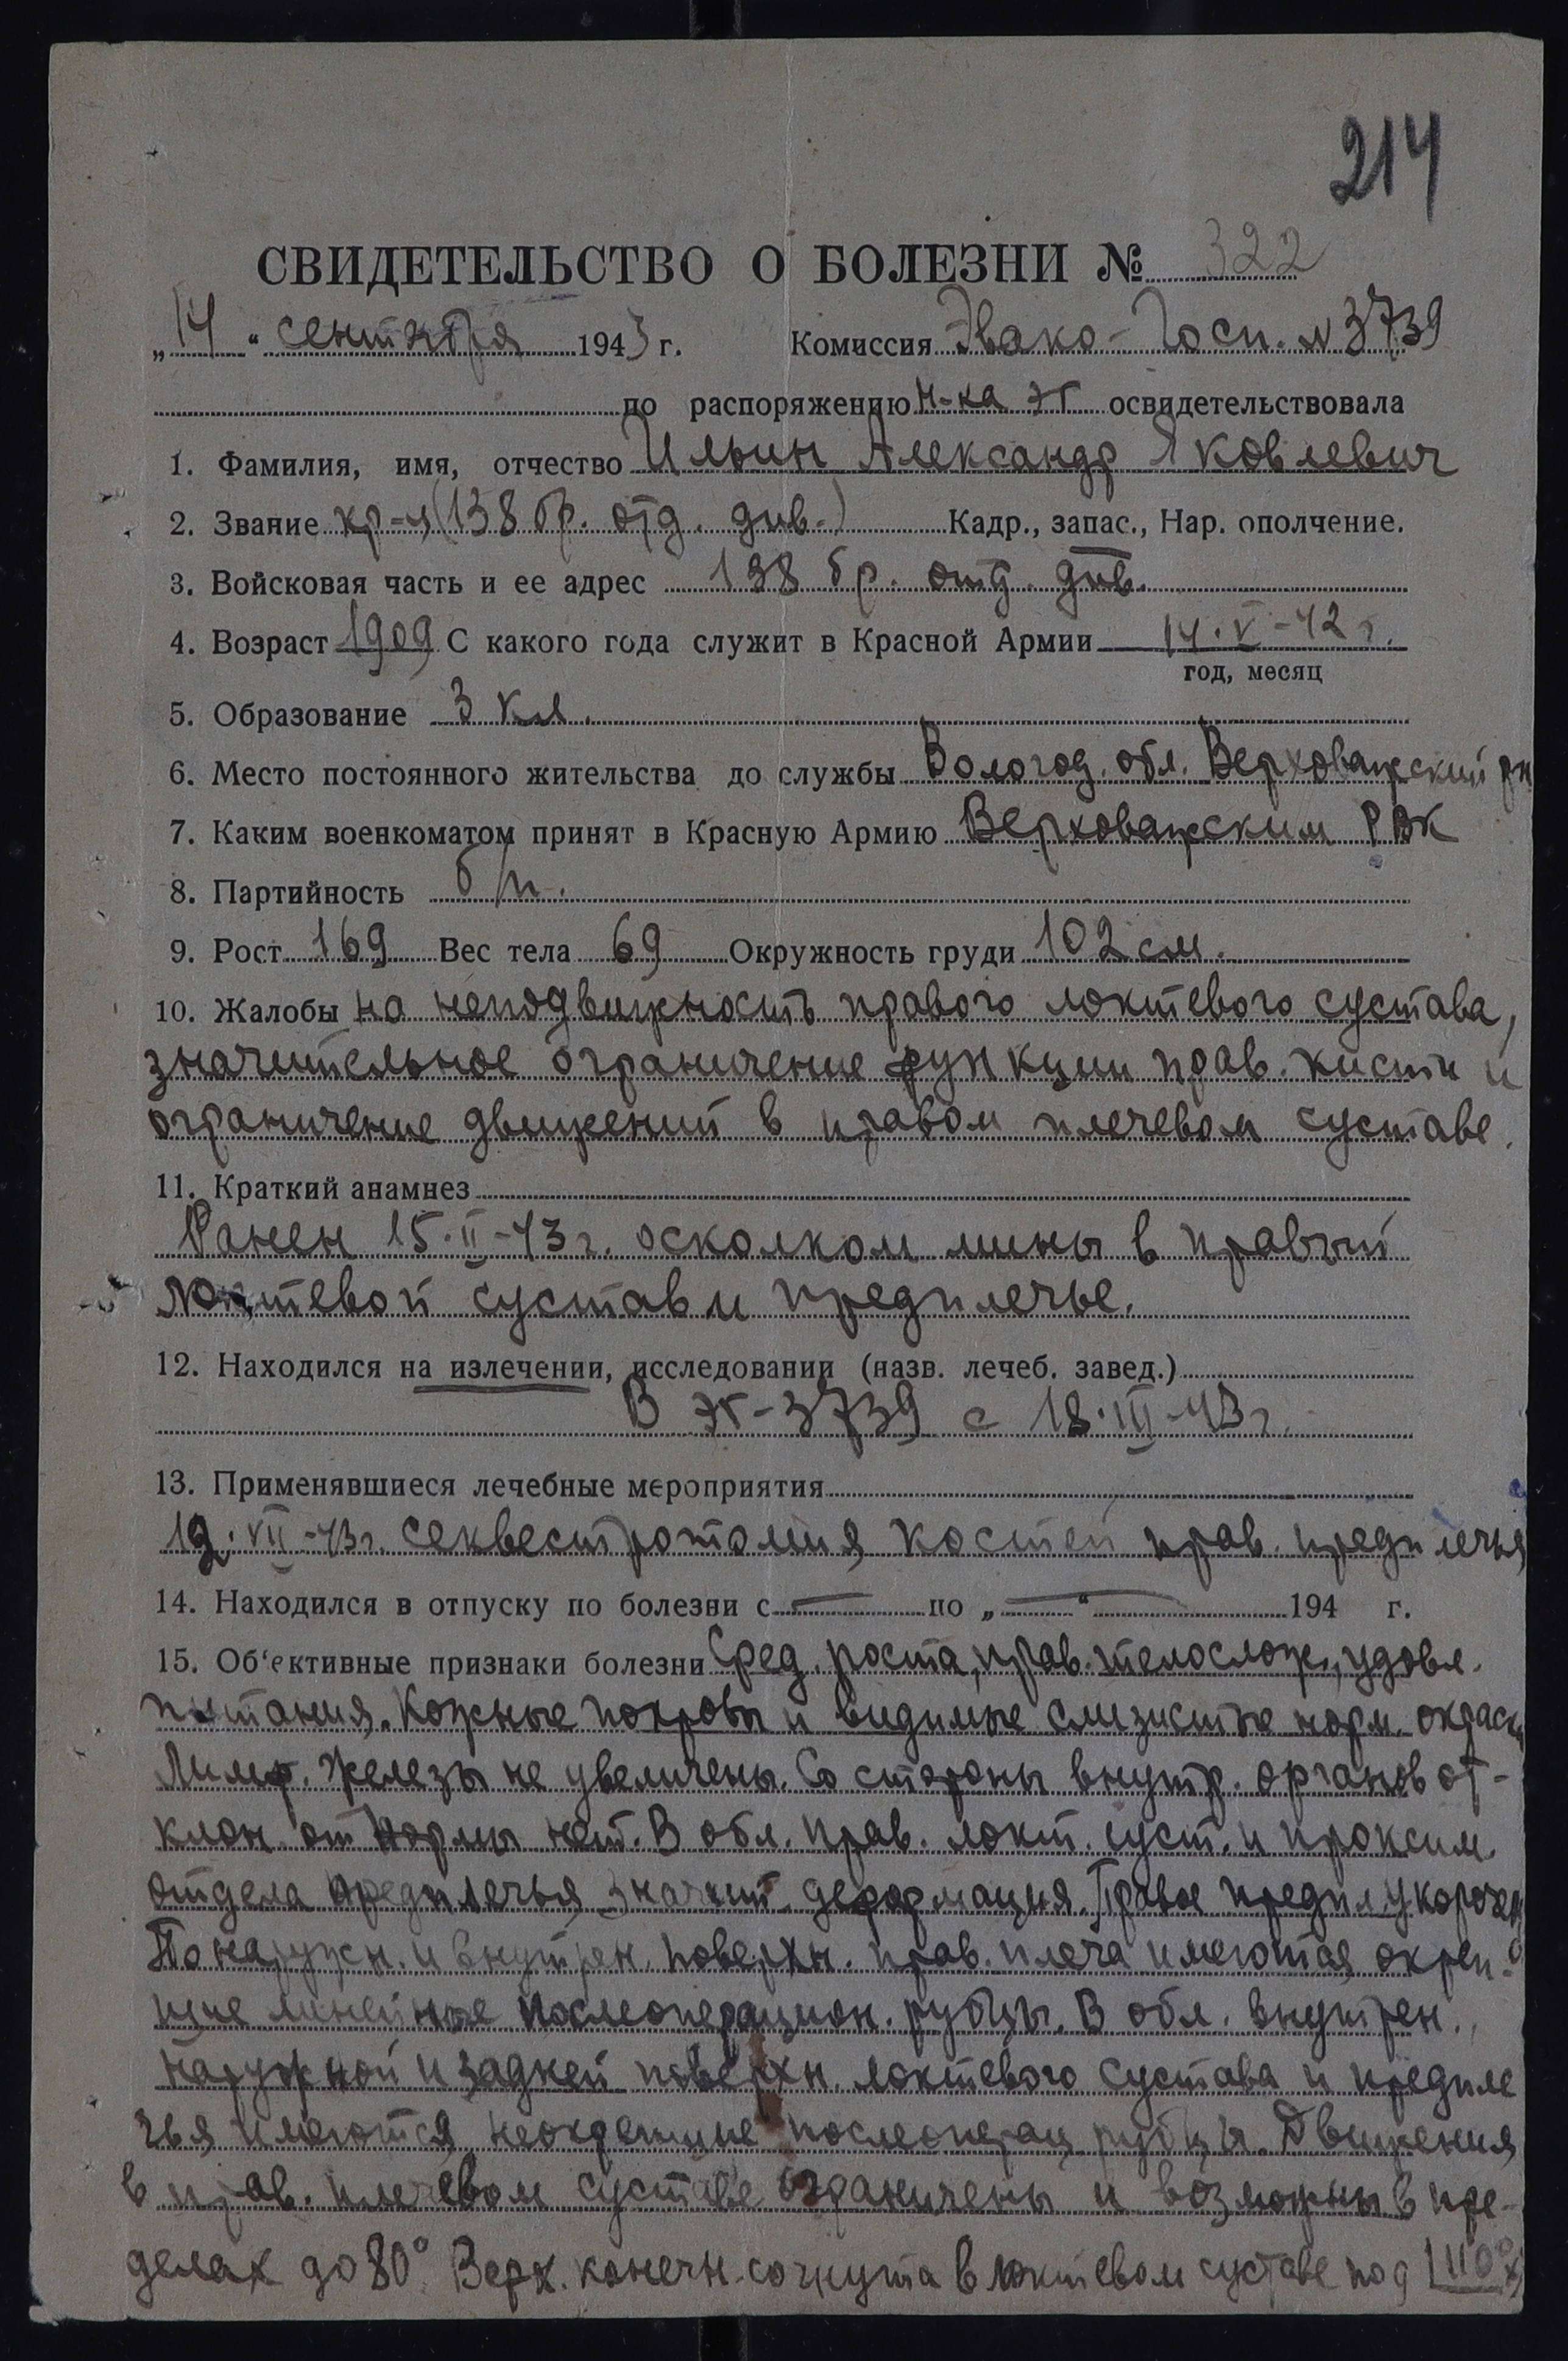 214
СВИДЕТЕЛЬСТВО О БОЛЕЗНИ № 322
„14“ сентября 1943 г. Комиссия Эвако-Госп. №3739
по распоряжению Н-ка ЭГ освидетельствовала
1. Фамилия, имя, отчество Ильин Александр Яковлевич
2. Звание кр-ц (138 бр. отд. див.) Кадр., запас., Нар. ополчение.
3. Войсковая часть и ее адрес 138 бр. отд. див.
4. Возраст 1909 С какого года служит в Красной Армии 14.V-42 г.
год, месяц
5. Образование 3 кл.
6. Место постоянного жительства до службы Вологод. обл. Верховажский рн
7. Каким военкоматом принят в Красную Армию Верховажским РВК
8. Партийность б/п.
9. Рост 169 Вес тела 69 Окружность груди 102 см.
10. Жалобы на неподвижность правого локтевого сустава,
значительное ограничение функции прав. кисти и
ограничение движений в правом плечевом суставе.
11. Краткий анамнез
Ранен 15.II-43 г. осколком мины в правый
локтевой сустав и предплечье.
12. Находился на излечении, исследовании (назв. лечеб. завед.)
В ЭГ-3739 с 18.III-43 г.
13. Применявшиеся лечебные мероприятия
12.VII-43 г. секвестротомия костей прав. предплечья
14. Находился в отпуску по болезни с — по „—“ 194 г.
15. Об‘ективные признаки болезни Сред. роста, прав. телослож., удовл.
питания. Кожные покровы и видимые слизистые норм. окраски
Лимф. железы не увеличены. Со стороны внутр. органов от-
клон. от нормы нет. В обл. прав. локт. суст. и проксим.
отдела предплечья значит. деформация. Правое предпл. укорочен
По наружн. и внутрен. поверхн. прав. плеча имеются окреп-
шие линейные послеоперацион. рубцы. В обл. внутрен.,
наружной и задней поверхн. локтевого сустава и предпле
чья имеются неокрепшие послеоперац. рубцы. Движения
в прав. плечевом суставе ограничены и возможны в пре-
делах до 80°. Верх. конечн. согнута в локтевом суставе под 110°